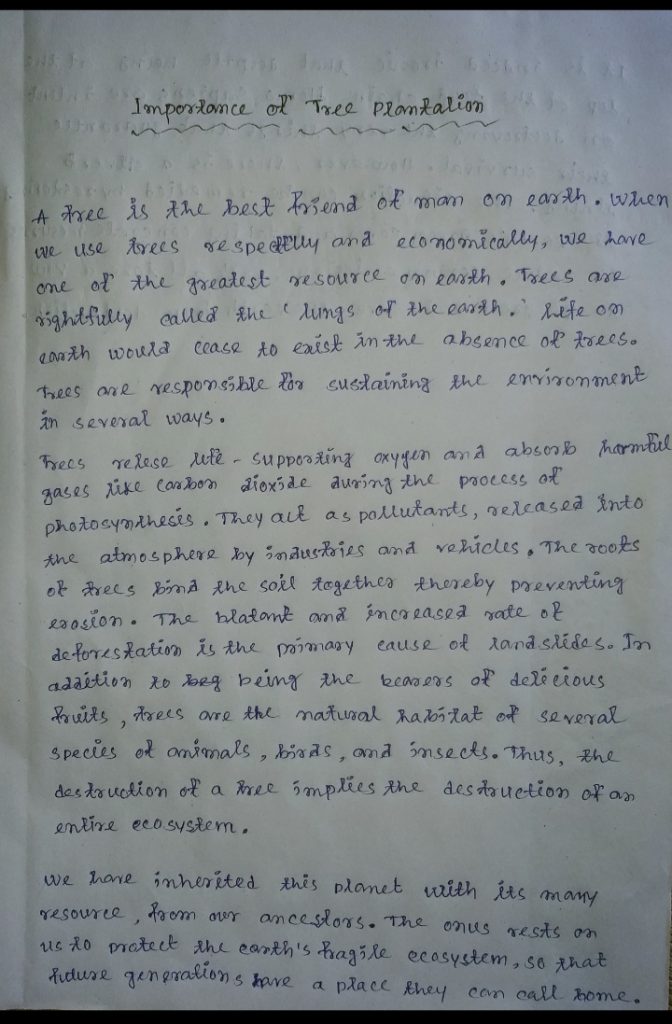 Importance of Tree Plantation
A tree is the best friend of man on earth. When
we use trees respectfully and economically, we have
one of the greatest resource on earth. Trees are
rightfully called the 'lungs of the earth.' Life on
earth would cease to exist in the absence of trees.
Trees are responsible for sustaining the environment
in several ways.
Trees relese life-supporting oxygen and absorb harmful
gases like carbon dioxide during the process of
photosynthesis. They act as pollutants, released into
the atmosphere by industries and vehicles. The roots
of trees bind the soil together thereby preventing
erosion. The blatant and increased rate of
deforestation is the primary cause of landslides. In
addition to being the bearers of delicious
fruits, trees are the natural habitat of several
species of animals, birds, and insects. Thus, the
destruction of a tree implies the destruction of an
entire ecosystem.
We have inherited this planet with its many
resource, from our ancestors. The onus rests on
us to protect the earth's fragile ecosystem, so that
future generations have a place they can call home.